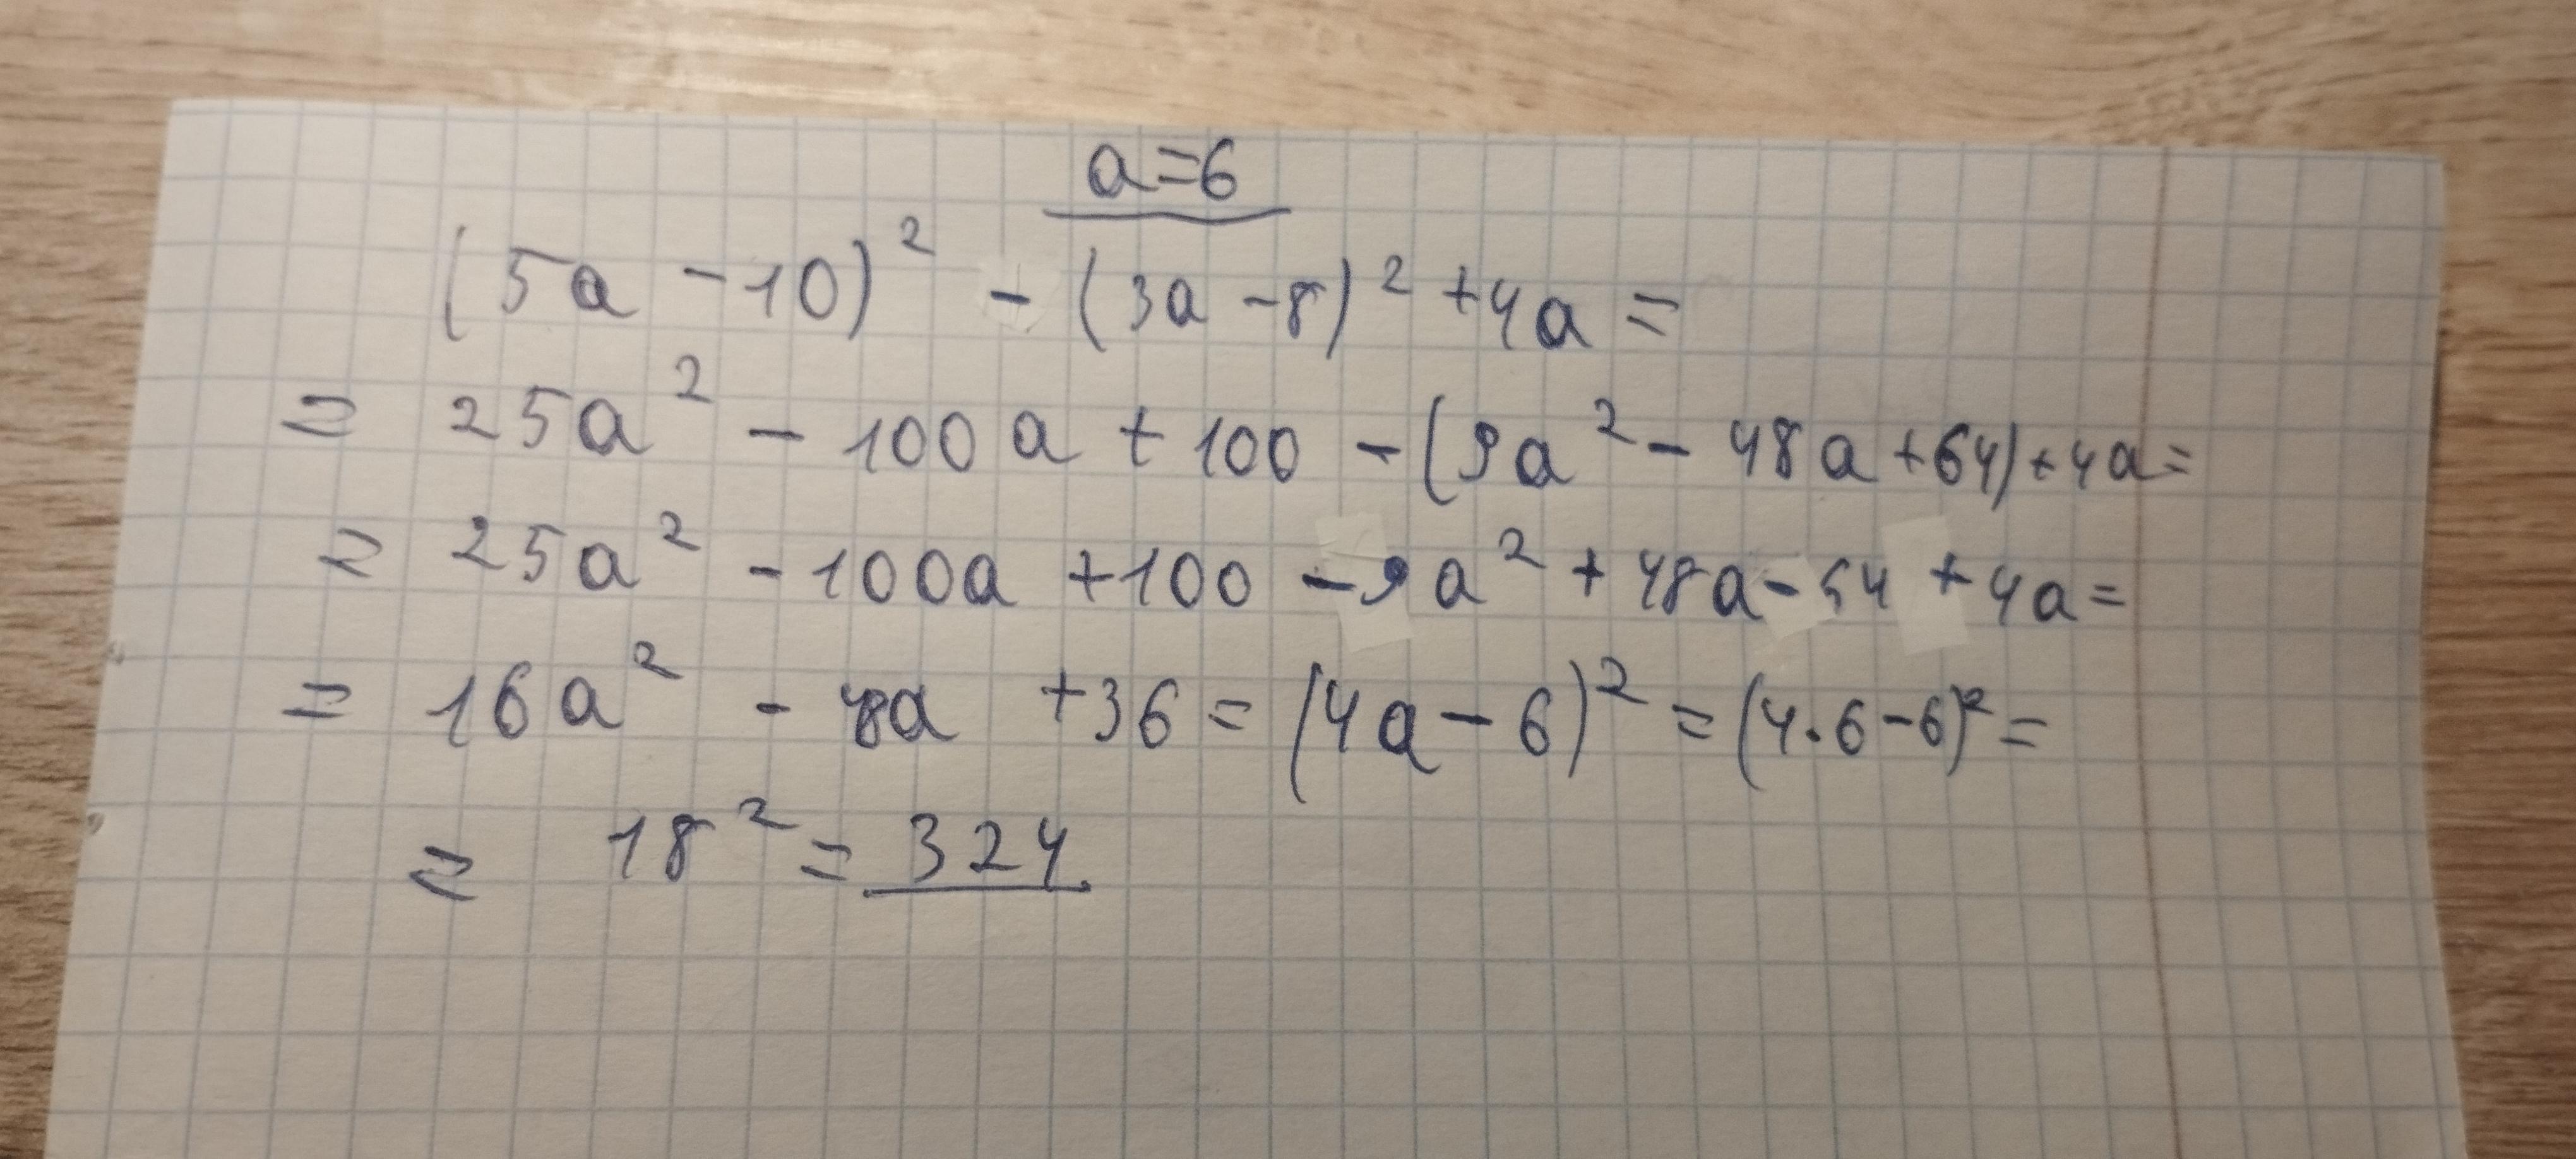 a=6
(5a-10)² - (3a-8)² +4a =
= 25a² - 100a + 100 - (9a² - 48a +64)+4a=
= 25a² - 100a +100 - 9a² + 48a - 64 + 4a =
= 16a² - 48a +36 = (4a - 6)² = (4·6-6)² =
= 18² = 324